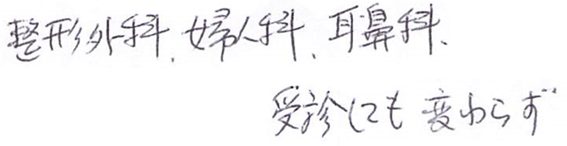 整形外科、婦人科、耳鼻科、
受診しても変わらず